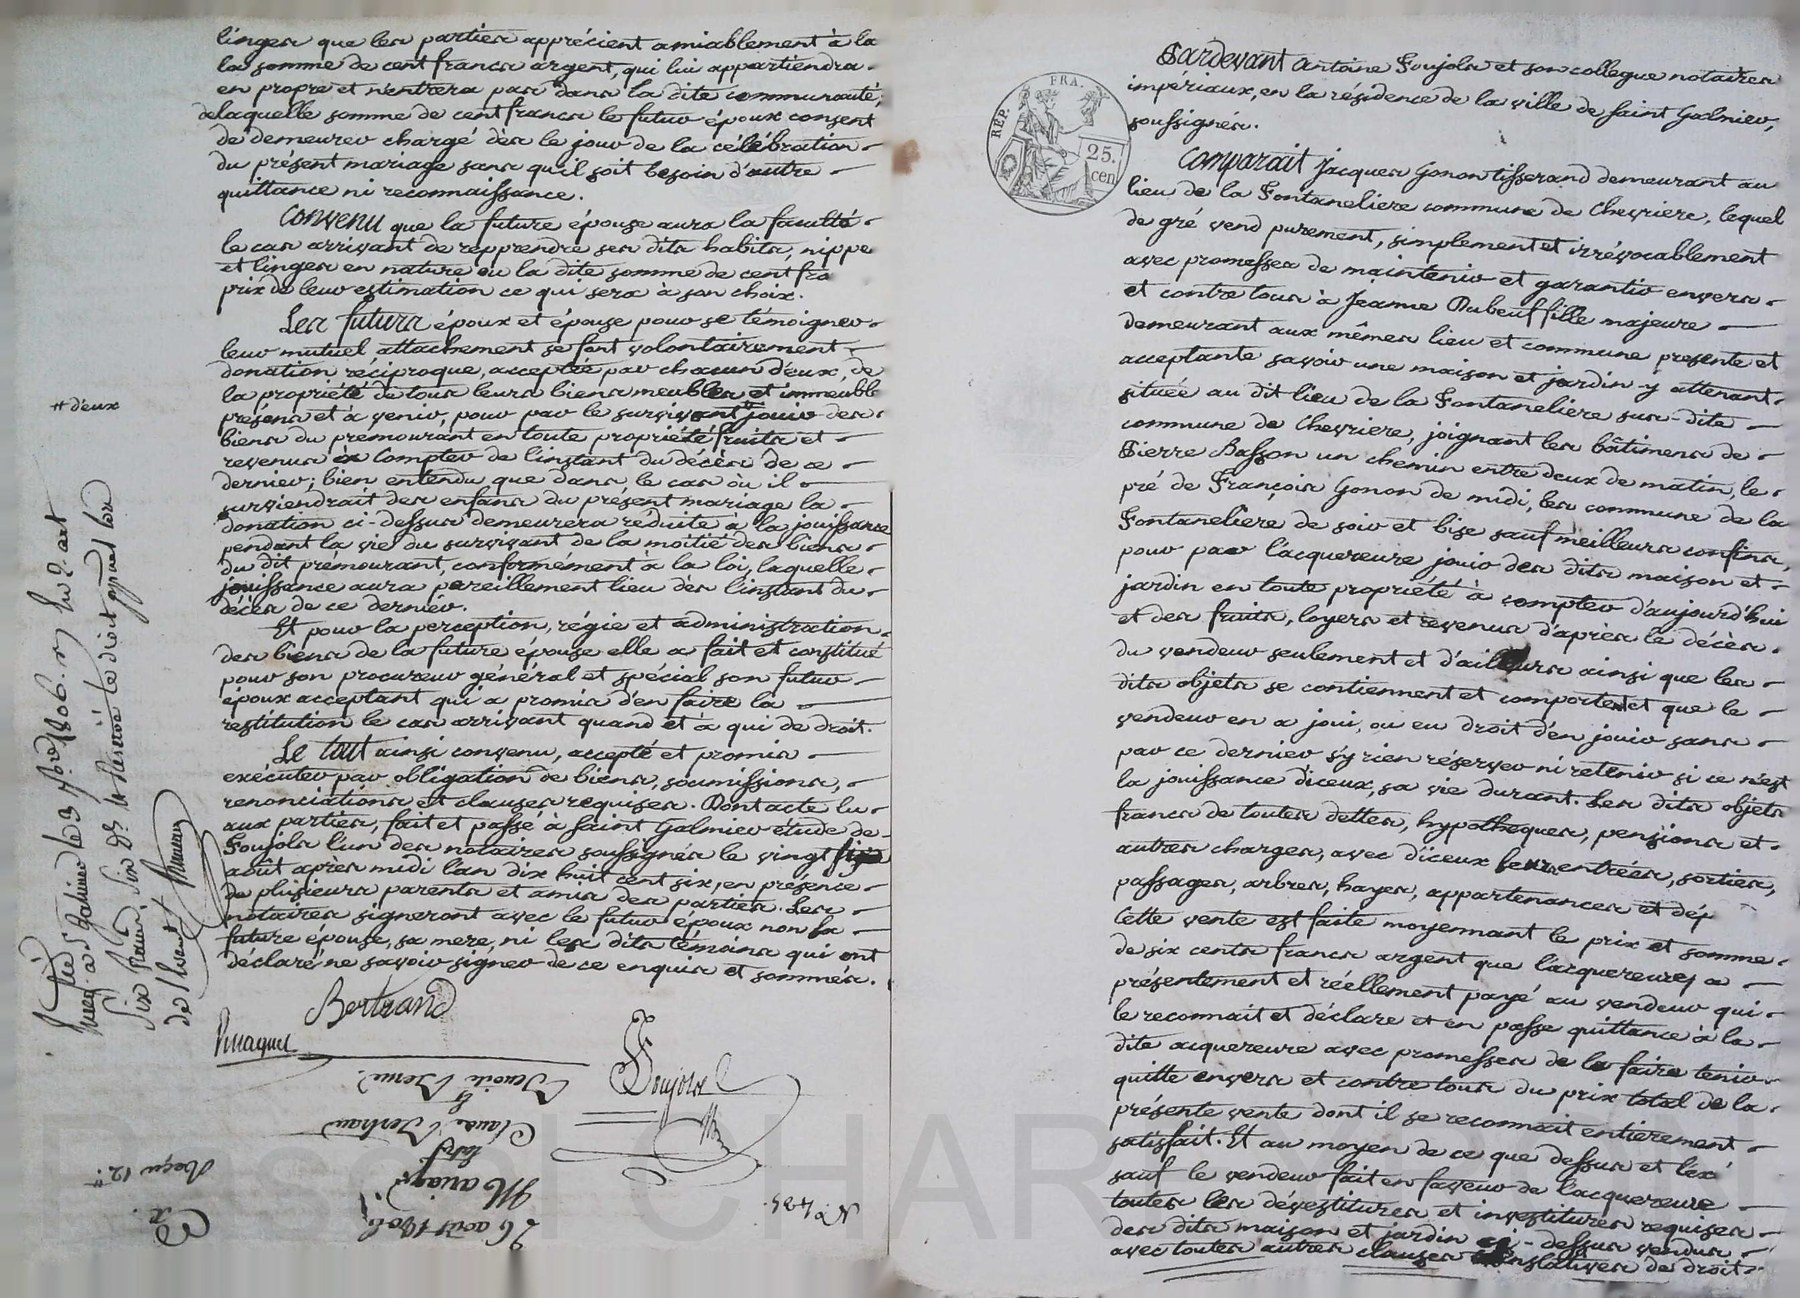 linges que les parties apprécient amiablement à la
la somme de cent francs argent, qui lui appartiendra
en propre et n'entrera pas dans la dite communauté,
de laquelle somme de cent francs le futur époux consent
de demeurer chargé dès le jour de la célébration
du présent mariage sans qu'il soit besoin d'autre
quittance ni reconnaissance.
Convenu que la future épouse aura la faculté
le cas arrivant de repprendre ses dits habits, nippe
et linges en nature ou la dite somme de cent fra
prix de leur estimation ce qui sera à son choix.
Les futurs époux et épouse pour se témoigner
leur mutuel attachement se font volontairement
donation réciproque, acceptée par chacun d'eux, de
la propriété de tous leurs biens meubles et immeuble
présens et à venir, pour par le survivant # jouir des
biens du prémourant en toute propriété fruits et
revenus à compter de l'instant du décès de ce
dernier; bien entendu que dans le cas où il
surviendrait des enfans du présent mariage la
donation ci-dessus demeurera réduite à la jouissance
pendant la vie du survivant de la moitié des biens
du dit prémourant, conformément à la loi, laquelle
jouissance aura pareillement lieu dès l'instant du
décès de ce dernier.
Et pour la perception, régie et administration
des biens de la future épouse elle a fait et constitué
pour son procureur général et spécial son futur
époux acceptant qui a promis d'en faire la
restitution le cas arrivant quand et à qui de droit.
Le tout ainsi convenu, accepté et promis
exécuter par obligation de biens, soumissions,
renonciations et clauses requises. Dont acte lu
aux parties, fait et passé à Saint Galmier étude de
Poujols l'un des notaires soussignés le vingt six
août après midi l'an dix huit cent six, en présence
de plusieurs parents et amis des parties. Les
notaires signeront avec le futur époux non la
future épouse, sa mere, ni les dits témoins qui ont
déclaré ne savoir signer de ce enquis et sommés.
# d'eux
Bertrand
Poujols
Claude Bertrand
Mariage
26 août 1806
Reçu 12
N° 2435
REP. FRA.
25. cen
Pardevant Antoine Poujols et son collegue notaires
impériaux, en la résidence de la ville de Saint Galmier,
soussignés.
Comparait Jacques Gonon tisserand demeurant au
lieu de la Fontaneliere commune de Chevriere, lequel
de gré vend purement, simplement et irrévocablement
avec promesses de maintenir et garantir envers
et contre tous à Jeanne Dubeuf fille majeure
demeurant aux mêmes lieu et commune presente et
acceptante savoir une maison et jardin y attenant
située au dit lieu de la Fontaneliere sus-dite
commune de Chevriere, joignant les bâtimens de
Pierre Basson un chemin entre deux de matin, le
pré de François Gonon de midi, les commune de la
Fontaneliere de soir et bise sauf meilleurs confins,
pour par l'acquereure jouir des dits maison et
jardin en toute propriété à compter d'aujourd'hui
et des fruits, loyers et revenus d'après le décès
du vendeur seulement et d'ailleurs ainsi que les
dits objets se contiennent et comportent et que le
vendeur en a joui, ou eu droit d'en jouir sans
par ce dernier s'y rien réserver ni retenir si ce n'est
la jouissance d'iceux, sa vie durant. Les dits objets
francs de toutes dettes, hypotheques, pensions et
autres charges, avec d'iceux leurs entrées, sorties,
passages, arbres, hayes, appartenances et dép
Cette vente est faite moyennant le prix et somme
de six cents francs argent que l'acquereure a
présentement et réellement payé au vendeur qui
le reconnait et déclare et en passe quittance à la
dite acquereure avec promesses de la faire tenir
quitte envers et contre tous du prix total de la
présente vente dont il se reconnait entierement
satisfait. Et au moyen de ce que dessus et lex
sauf le vendeur fait en faveur de l'acquereure
toutes les dévestitures et investitures requises
des dits maison et jardin ci-dessus vendus
avec toutes autres clauses translatives de droit